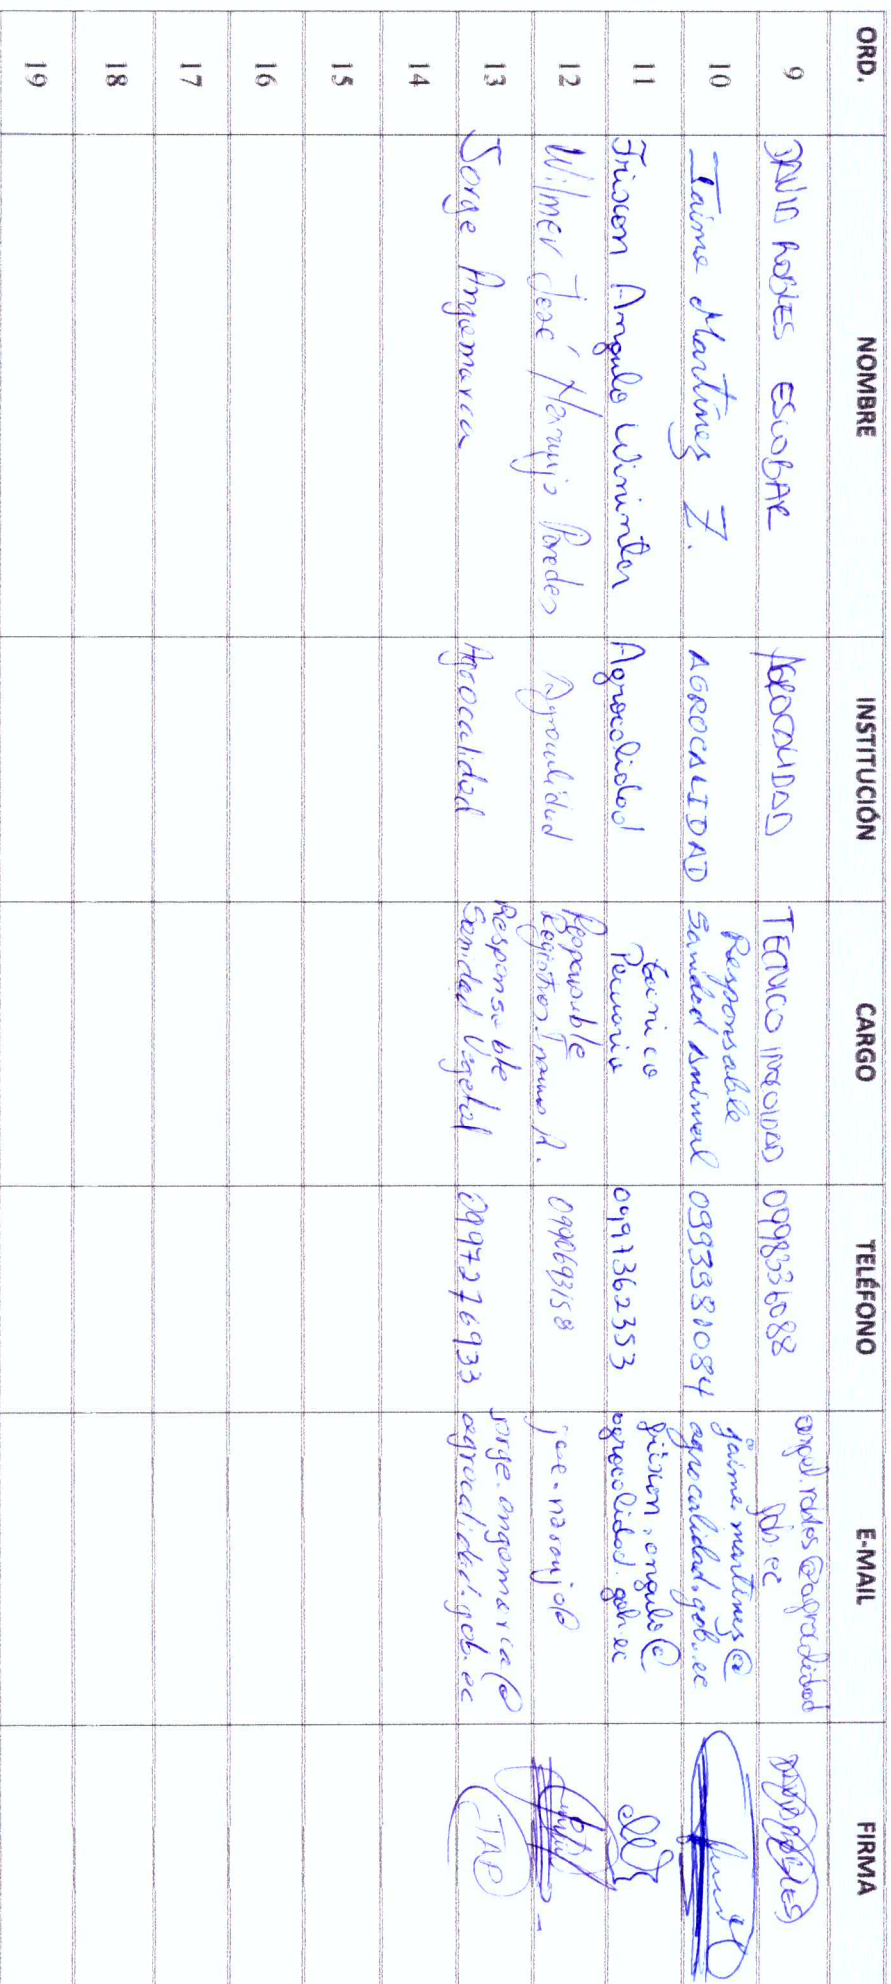 ORD. NOMBRE INSTITUCIÓN CARGO TELÉFONO E-MAIL FIRMA
9 DAVID ROBLES ESCOBAR AGROCALIDAD TECNICO INOCUIDAD 0998336088 angel.robles@agrocalidad
gob.ec
10 Jaime Martínez Z. AGROCALIDAD Responsable
Sanidad Animal 0993981084 jaime.martinez@
agrocalidad.gob.ec
11 Frixon Angulo Wininter Agrocalidad tecnico
Pecuario 0997362353 frixon.angulo@
agrocalidad.gob.ec
12 Wilmer José Naranjo Paredes Agrocalidad Responsable
Registros 0990693158 jose.naranjo@
13 Jorge Angamarca Agrocalidad Responsable
Sanidad Vegetal 0997276933 jorge.angamarca@
agrocalidad.gob.ec
14
15
16
17
18
19